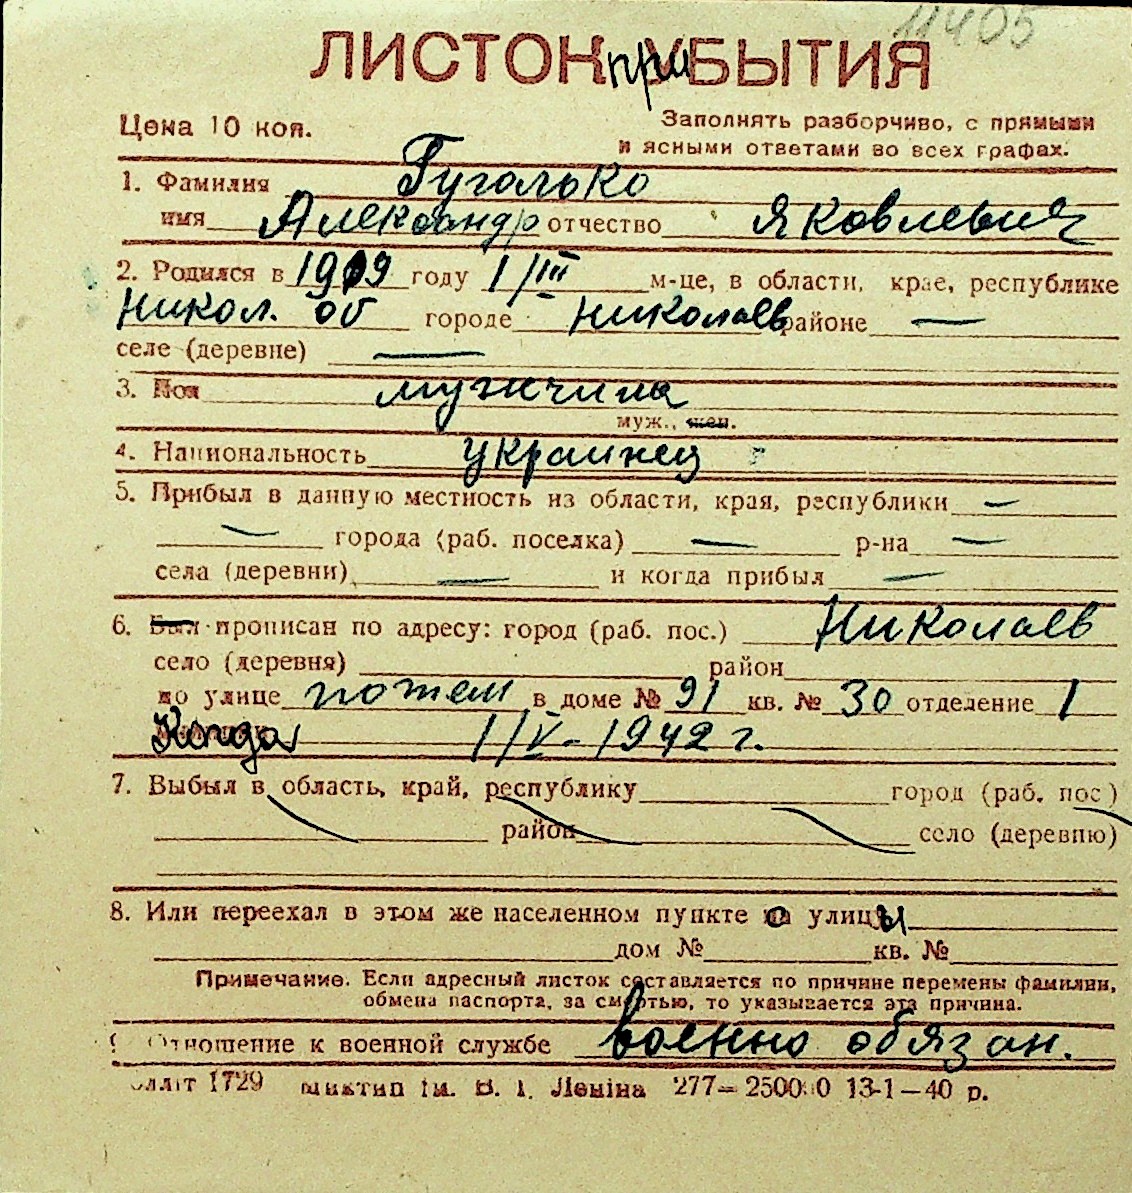 11405
ЛИСТОК приБЫТИЯ
Цена 10 коп.
Заполнять разборчиво, с прямыми
и ясными ответами во всех графах.
1. Фамилия Гуголько
имя Александр отчество Яковлевич
2. Родился в 1909 году 1/III м-це, в области, крае, республике
Никол. об городе Николаев районе —
селе (деревне) —
3. Пол мужчина
муж., жен.
4. Национальность украинец
5. Прибыл в данную местность из области, края, республики —
— города (раб. поселка) — р-на —
села (деревни) — и когда прибыл —
6. Был прописан по адресу: город (раб. пос.) Николаев
село (деревня) район
по улице потем в доме № 91 кв. № 30 отделение 1
Когда 1/V-1942 г.
7. Выбыл в область, край, республику город (раб. пос.)
район село (деревню)
8. Или переехал в этом же населенном пункте с улицы
дом № кв. №
Примечание. Если адресный листок составляется по причине перемены фамилии,
обмена паспорта, за смертью, то указывается эта причина.
9. Отношение к военной службе военно обязан.
1729 ім. В. І. Леніна 277—250000 13-1—40 р.